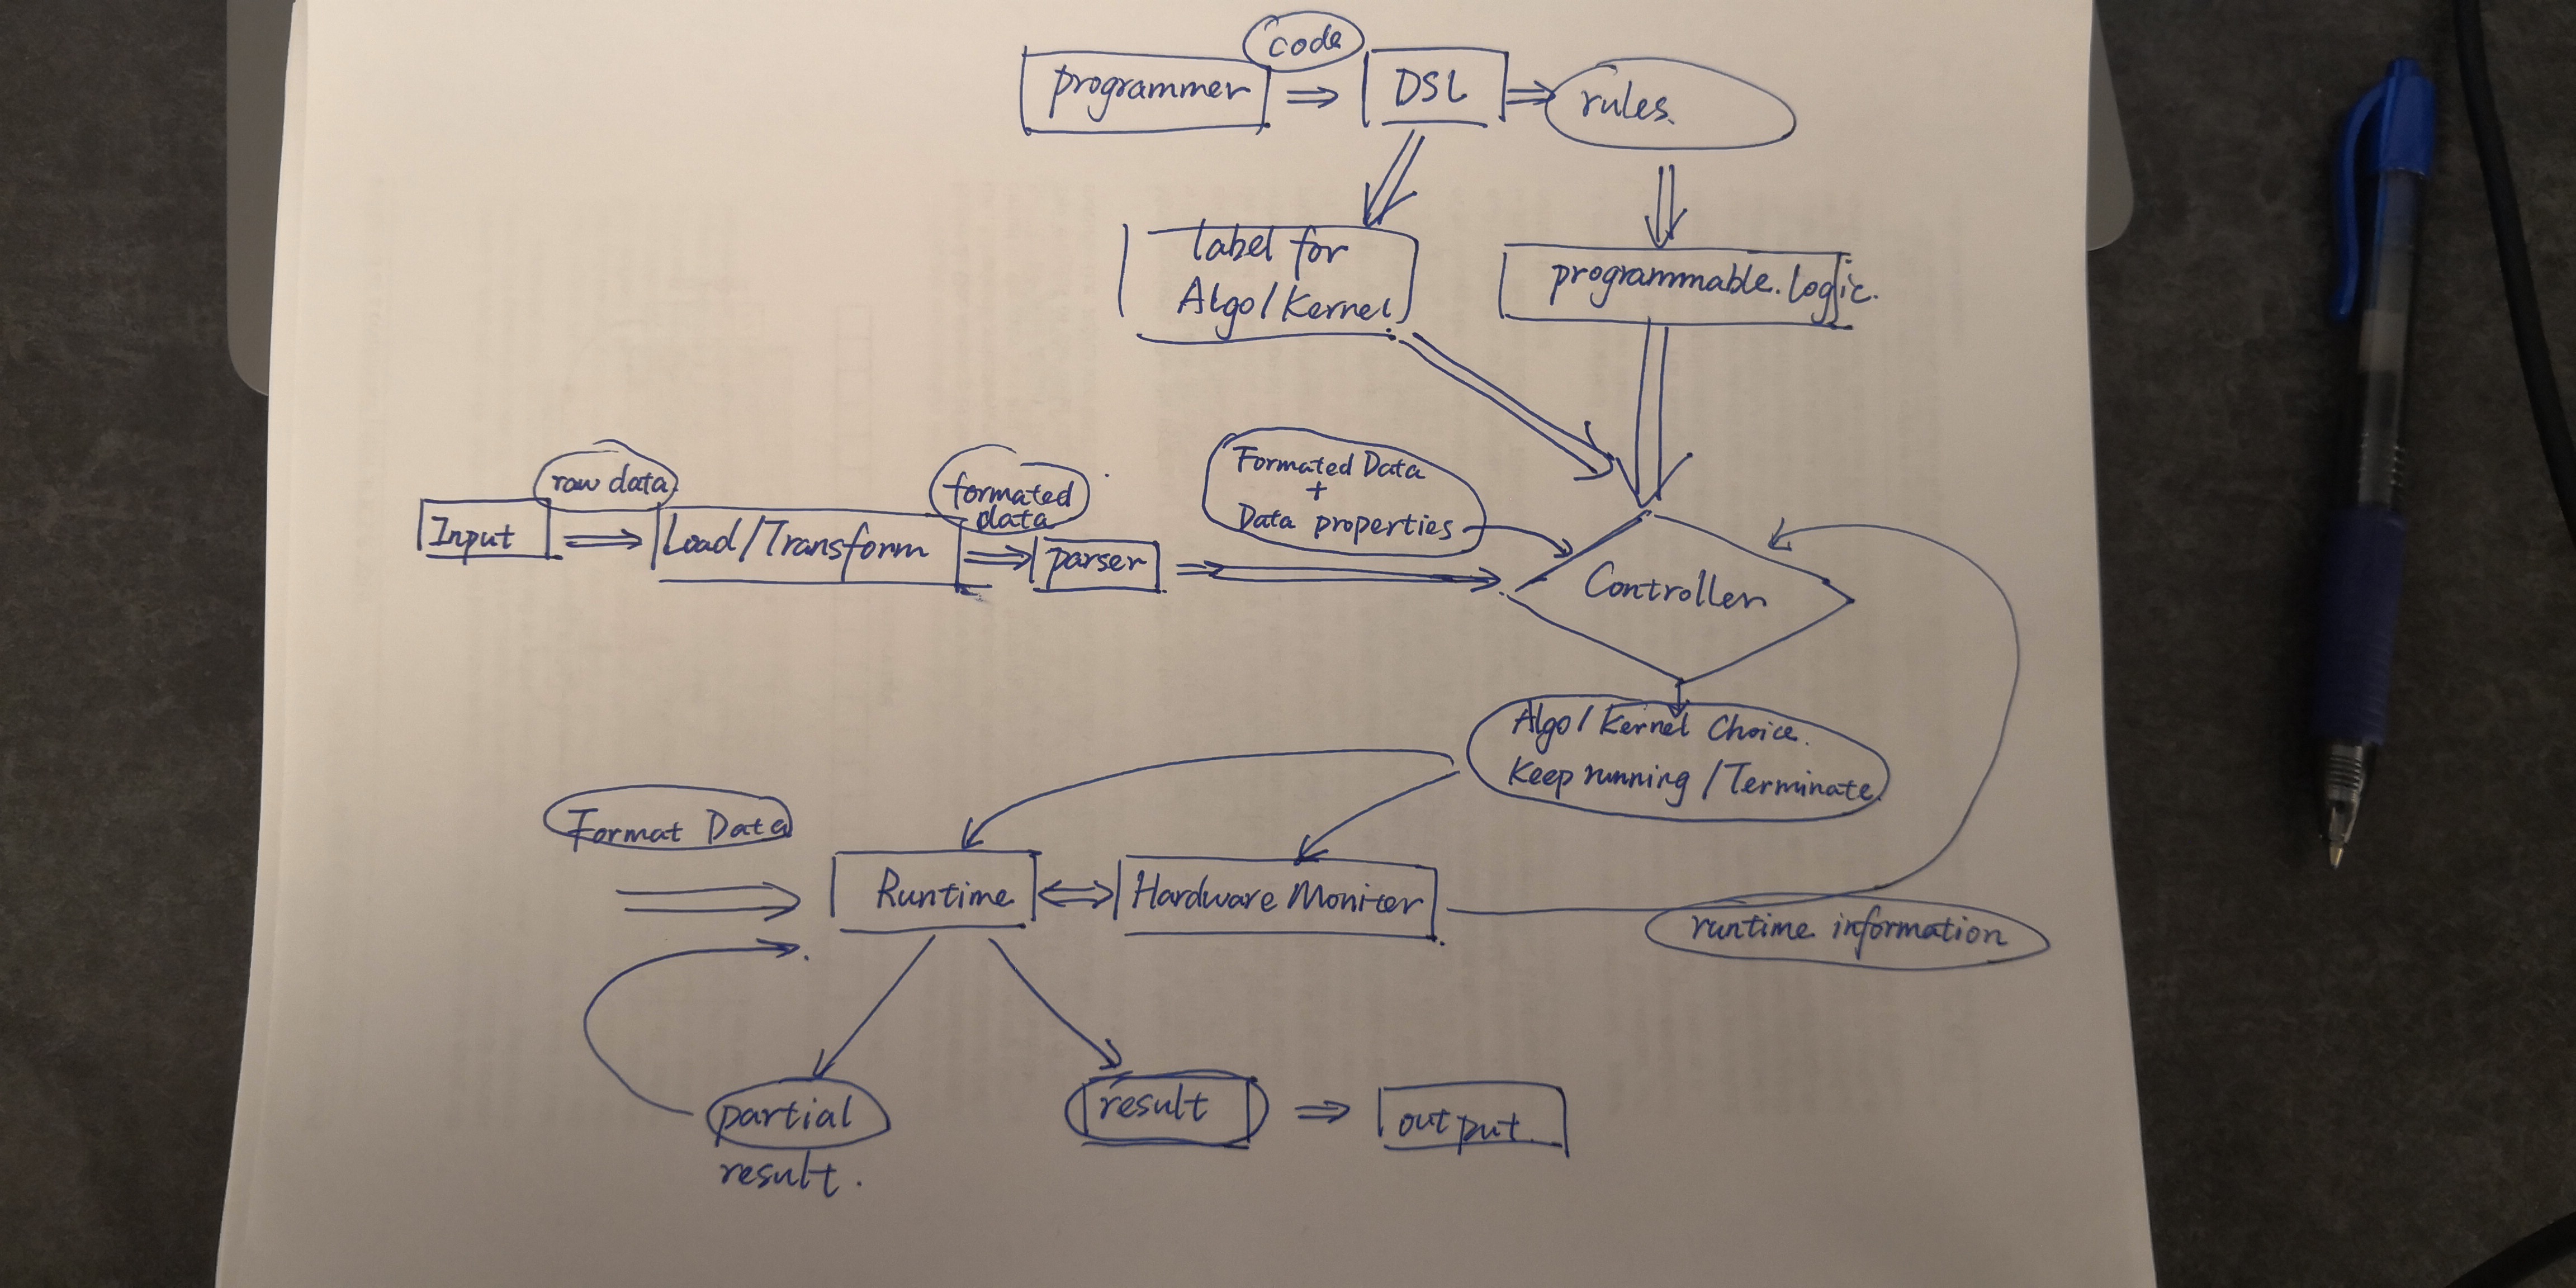 code
programmer
DSL
rules.
label for
Algo/Kernel
programmable.logic.
raw data
formated
data
Formated Data
+
Data properties
Input
Load/Transform
parser
Controller
Algo/Kernel Choice.
Keep running/Terminate.
Format Data
Runtime
Hardware Moniter
runtime information
partial
result.
result
output.